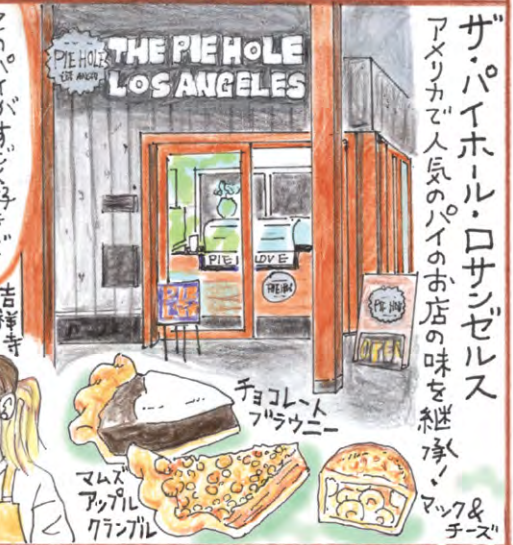 ザ・パイホール・ロサンゼルス
アメリカで人気のパイのお店の味を継承!
PIE HOLE
LOS ANGELES
THE PIE HOLE
LOS ANGELES
PIE
LOVE
PIE HOLE
PIE HOLE
OPEN
チョコレート
ブラウニー
マムズ
アップル
クランブル
マック&
チーズ
このパイがすごく好きで
吉祥寺